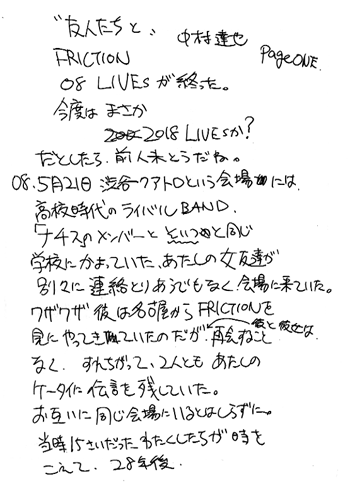 "友人たちと、 中村達也 PageONE.
FRICTION
08 LIVEsが終った。
今度は まさか
2018 LIVESか?
だとしたら、前人未とうだね。
08.5月21日 渋谷クアトロという会場には、
高校時代のライバルBAND.
「ナチス」のメンバーと といつめと同じ
学校にかよっていた、あたしの女友達が
別々に連絡とりあうでもなく会場に来ていた。
ワザワザ彼は名古屋からFRICTIONを
見にやってきていたのだが、再会すること
彼と彼女は
なく、すれちがって、2人とも あたしの
ケータイに伝言を残していた。
お互いに同じ会場にいるとはしらずに。
当時15さいだったわたくしたちが時を
こえて、28年後.